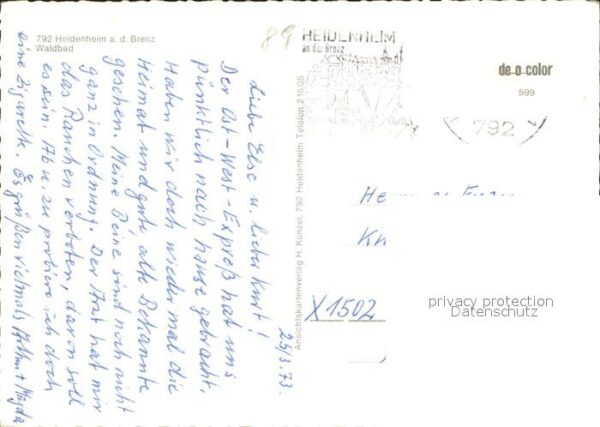 792 Heidenheim a. d. Brenz
Waldbad
89
HEIDENHEIM
an der Brenz
de-o-color
599
792
25/3.73.
Liebe Else u. lieber Kurt!
Der Ost-West-Expreß hat uns
pünktlich nach hause gebracht.
Haben wir doch wieder mal die
Heimat und gute alte Bekannte
gesehen. Meine Beine sind noch nicht
ganz in Ordnung. Der Arzt hat mir
das Rauchen verboten, davon soll
es sein. Ab u. zu probiere ich doch
eine Zigarette. Es grüßen vielmals Arthur + Magda
Ansichtskartenverlag H. Künzel, 792 Heidenheim Telefon 21505
He
Ku
X1502
privacy protection
Datenschutz